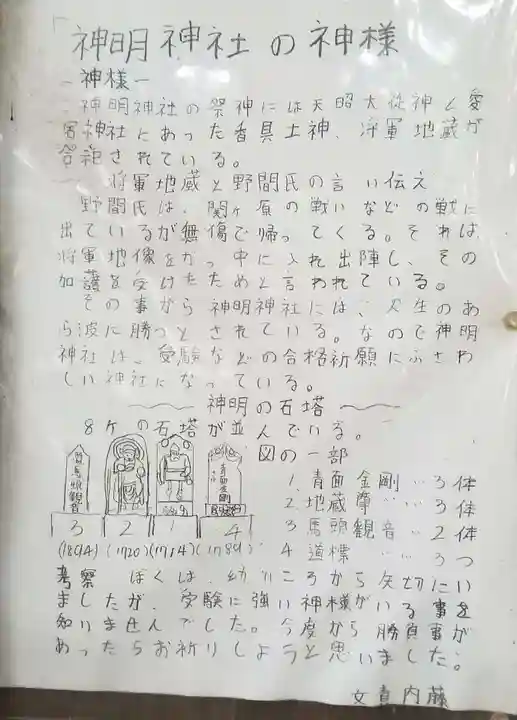 神明神社の神様
－神様－
神明神社の祭神には天昭大従神と愛
宕神社にあった香具土神、将軍地蔵が
合祀されている。
将軍地蔵と野間氏の言い伝え
野間氏は、関ヶ原の戦いなどの戦に
出ているが無傷で帰ってくる。それは
将軍地像をかっ中に入れ出陣し、その
加護を受けたためと言われている。
その事から神明神社には、人生のあ
ら波に勝つとされている。なので神明
神社は、受験などの合格祈願にふさわ
しい神社になっている。
神明の石塔
8ケの石塔が並んでいる。
図の一部
馬頭観音
青面金剛
3 2 1 4
(1894) (1720) (1714) (1789)
1 青面金剛 … 3体
2 地蔵 … 3体
3 馬頭観音 … 2体
4 道標 … 3つ
考察 ぼくは、幼いころから矢切にい
ましたが、受験に強い神様がいる事を
知りませんでした。今度から勝負事が
あったらお祈りしようと思いました。
文責 内藤